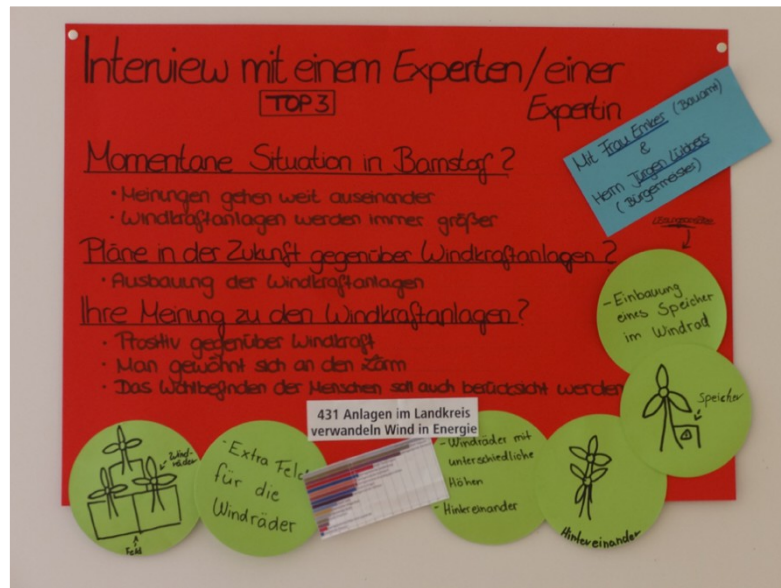 Interview mit einem Experten/einer
Expertin
TOP 3
Mit Frau Emker (Bauamt)
&
Herrn Jürgen Lübbers
(Bürgermeister)
Momentane Situation in Barnstorf?
• Meinungen gehen weit auseinander
• Windkraftanlagen werden immer größer
Pläne in der Zukunft gegenüber Windkraftanlagen?
• Ausbauung der Windkraftanlagen
Ihre Meinung zu den Windkraftanlagen?
• Positiv gegenüber Windkraft
• Man gewöhnt sich an den Lärm
• Das Wohlbefinden der Menschen soll auch berücksicht werden
- Einbauung
eines Speicher
im Windrad
Speicher
431 Anlagen im Landkreis
verwandeln Wind in Energie
Wind-
räder
Feld
- Extra Feld
für die
Windräder
- Windräder mit
unterschiedliche
Höhen
- Hintereinander
Hintereinander